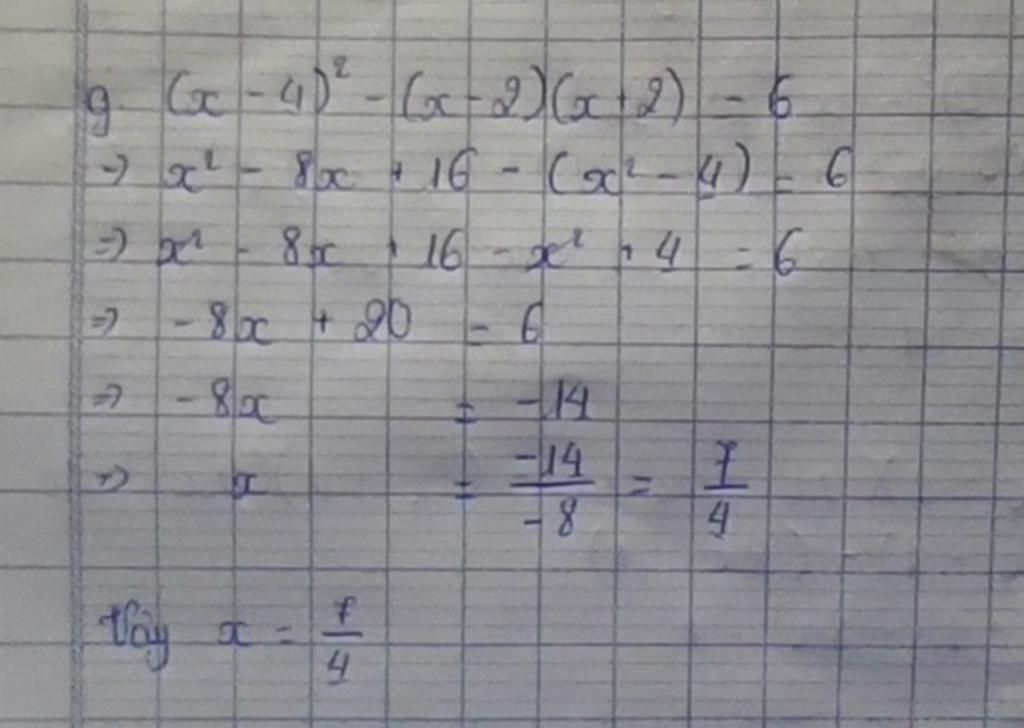 g. (x - 4)² - (x - 2)(x + 2) = 6
=> x² - 8x + 16 - (x² - 4) = 6
=> x² - 8x + 16 - x² + 4 = 6
=> -8x + 20 = 6
=> -8x = -14
=> x = -14/-8 = 7/4
Vậy x = 7/4